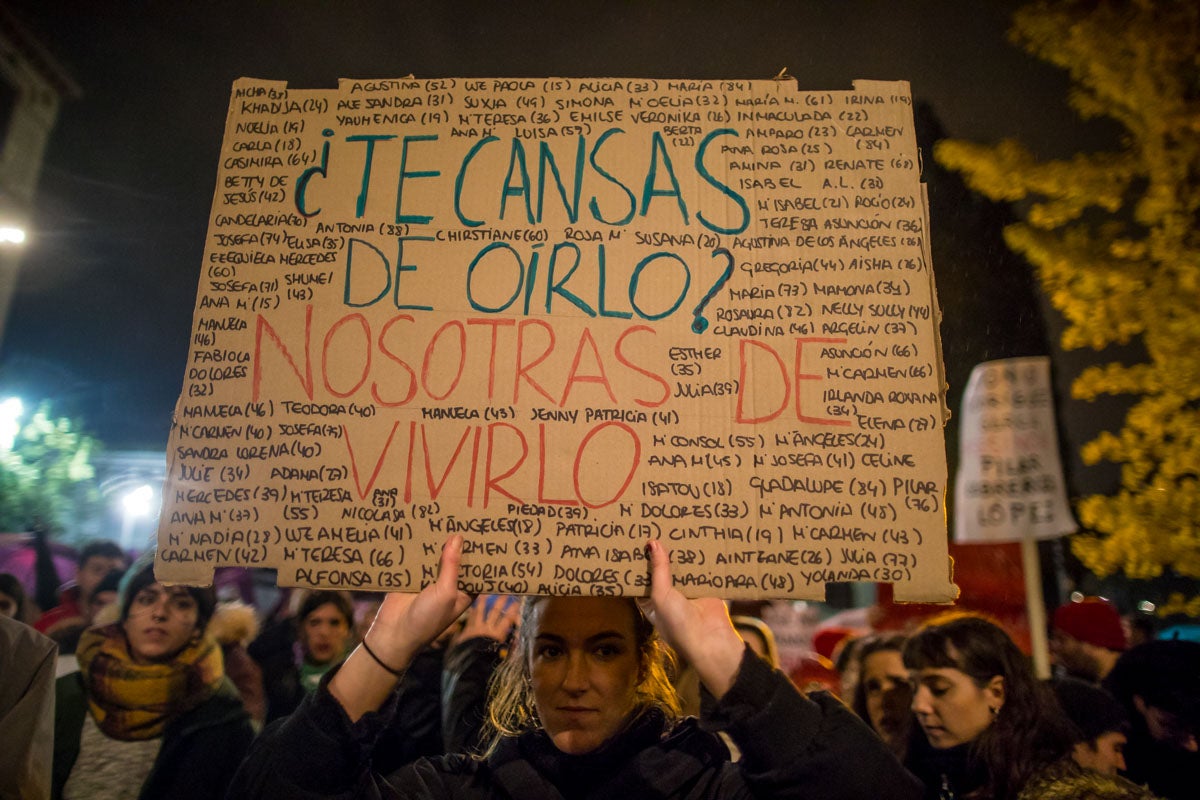 AICHA (33) AGUSTINA (52) LUZ PAOLA (15) ALICIA (33) MARÍA (84)
KHADIJA (24) ALESANDRA (31) SUXIA (49) SIMONA Mª CELIA (32) MARÍA M. (61) IRINA (19)
YAUHENICA (19) Mª TERESA (36) EMILSE VERONIKA (26) INMACULADA (22)
NOELIA (19) ANA Mª LUISA (57) BERTA (22) AMPARO (23) CARMEN (84)
CARLA (18) ANA ROSA (25)
CASIMIRA (64) AMINA (31) RENATE (68)
¿TE CANSAS
BETTY DE JESÚS (42) ISABEL A.L. (30)
Mª ISABEL (21) ROCÍO (24)
CANDELARIA (70) ANTONIA (88) TERESA ASUNCIÓN (36)
JOSEFA (74) ELISA (35) CHIRSTIANE (60) ROSA Mª SUSANA (20) AGUSTINA DE LOS ÁNGELES (36)
EZEQUIELA MERCEDES (60)
DE OÍRLO?
GREGORIA (44) AISHA (26)
JOSEFA (71) SHUNEI (43) MARÍA (73) MAMONA (34)
ANA Mª (15) ROSAURA (82) NELLY SULLY (44)
MANUELA (46) CLAUDINA (46) ARGELIN (37)
NOSOTRAS DE
FABIOLA DOLORES (32) ESTHER (35) ASUNCIÓN (66)
JULIA (39) Mª CARMEN (66)
IRLANDA ROXANA (34)
MANUELA (46) TEODORA (40) MANUELA (43) JENNY PATRICIA (41) ELENA (27)
Mª CARMEN (40) JOSEFA (75) Mª CONSOL (55) Mª ÁNGELES (24)
VIVIRLO
SANDRA LORENA (40) ANA M (45) Mª JOSEFA (41) CELINE
JULIE (34) ADANA (27) ISATOU (18) GUADALUPE (84) PILAR (76)
MERCEDES (39) Mª TERESA (55) ANA (31) NICOLASA (82) PIEDAD (39) Mª DOLORES (33) Mª ANTONIA (48)
ANA Mª (37) Mª ÁNGELES (18) PATRICIA (13) CINTHIA (19) Mª CARMEN (43)
Mª NADIA (28) LUZ AMELIA (41)
CARMEN (42) Mª TERESA (66) ANA ISAB (38) AINTZANE (26) JULIA (77)
ALFONSA (35) DOLORES MARIO ARA (48) YOLANDA (30)
ALICIA (35)
PILAR
LÓPEZ